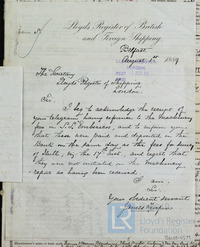 Lloyd's Register of British
and Foreign Shipping.
Belfast,
August 1st 1889
The Secretary
Lloyd's Register of Shipping
London
Sir,
I beg to acknowledge the receipt of
your telegram having reference to the machinery
fees in S.S.
and to inform you
that these were paid and deposited in the
Bank on the same day as the fees for survey
of Hull,
and regret that
they were not entered on the machinery
report as having been received.
I am
Sir
Your obedient servant
Lloyd's Register
Foundation